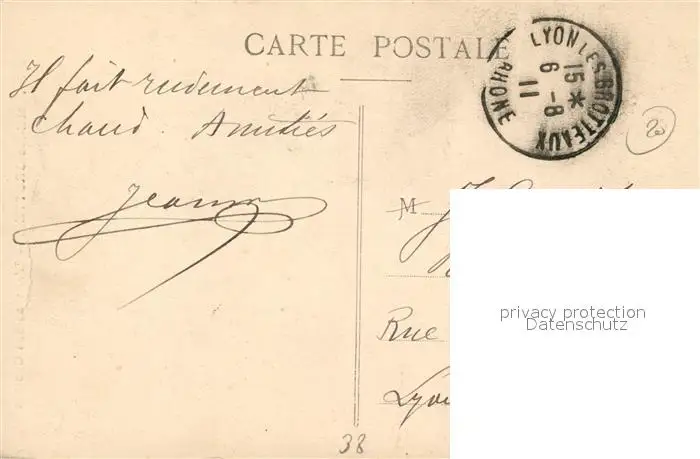 CARTE POSTALE
LYON LES BROTTEAUX
15 *
6 - 8
11
RHONE
Il fait rudement
chaud. Amitiés
Jeanne
20
M
Rue
Lyon
38
privacy protection
Datenschutz